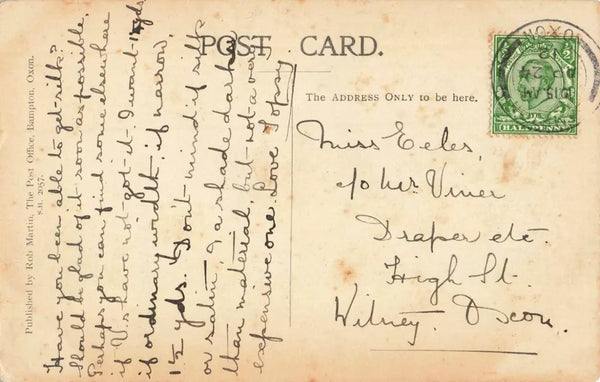 POST CARD.
The ADDRESS ONLY to be here.
Published by Rob Martin, The Post Office, Bampton, Oxon.
S.H. 2057.
Have you been able to get silk?
Should be glad of it soon as possible,
Perhaps you can find some elsewhere
if V.s have not got it. I want 1¼ yds
if ordinary width, if narrow,
1½ yds. Don't mind if silk
or satin, & a shade darker
than material, but not a very
expensive one. Love Topsy
Miss Eeles,
c/o Mr Viner
Draper etc.
High St.
Witney, Oxon.
OXON
10.15 AM
24
12
HALFPENNY